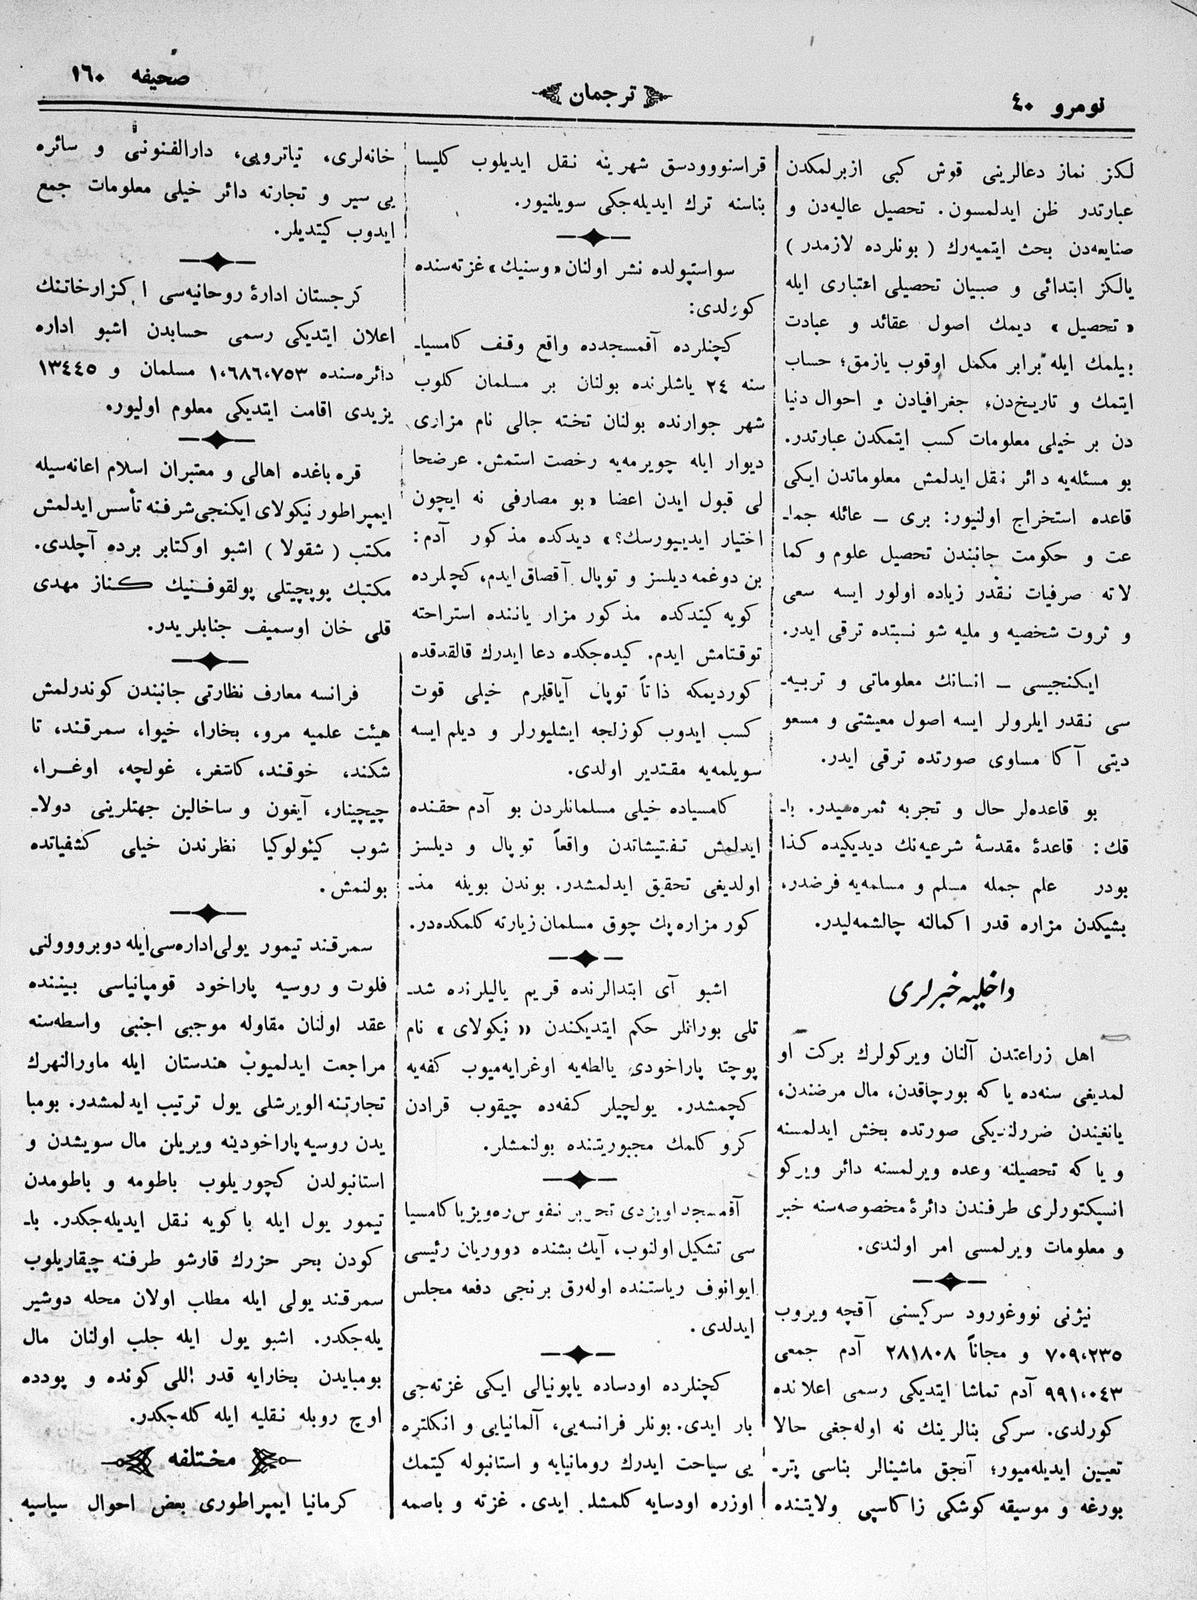 نومرو ٤٠
ترجمان
صحیفه ١٦٠
لكز نماز دعالرینی قوش كبی ازبرلمكدن
عبارتدر ظن ایدلمسون. تحصیل عالیه‌دن و
صنایعه‌دن بحث ایتمیه‌رك ( بونلرده لازمدر )
یالكز ابتدائی و صبیان تحصیلی اعتباری ایله
«تحصیل» دیمك اصول عقائد و عبادت
بیلمك ایله برابر مكمل اوقوب یازمق؛ حساب
ایتمك و تاریخ‌دن، جغرافیادن و احوال دنیا
دن بر خیلی معلومات كسب ایتمكدن عبارتدر.
بو مسئله‌یه دائر نقل ایدلمش معلوماتدن ایكی
قاعده استخراج اولنیور: بری ــ عائله جما-
عت و حكومت جانبندن تحصیل علوم و كما
لاته صرفیات نقدر زیاده اولور ایسه سعی
و ثروت شخصیه و ملیه شو نسبتده ترقی ایدر.
ایكنجیسی ــ انسانك معلوماتی و تربیه-
سی نقدر ایلرولر ایسه اصول معیشتی و مسعو
دیتی آكا مساوی صورتده ترقی ایدر.
بو قاعده‌لر حال و تجربه ثمره‌سیدر. با-
قك: قاعدهٔ مقدسهٔ شرعیه‌نك دیدیكیده كذا
بودر علم جمله مسلم و مسلمه‌یه فرضدر،
بشیكدن مزاره قدر اكمالنه چالشمه‌لیدر.
داخلیه خبرلری
اهل زراعتدن آلنان ویركولرك بركت او
لمدیغی سنه‌ده یا كه بورچاقدن، مال مرضندن،
یانغیندن ضررلندیكی صورتده بخش ایدلمسنه
و یا كه تحصیلنه وعده ویرلمسنه دائر ویركو
انسپكتورلری طرفندن دائرهٔ مخصوصه‌سنه خبر
و معلومات ویرلمسی امر اولندی.
نیژنی نووغورود سركیسنی آقچه ویروب
٧٠٩،٢٣٥ و مجاناً ٢٨١٨٠٨ آدم جمعی
٩٩١،٠٤٣ آدم تماشا ایتدیكی رسمی اعلانده
كورلدی. سركی بنالرینك نه اوله‌جغی حالا
تعیین ایدیله‌میور؛ آنجق ماشینالر بناسی پتر-
بورغه و موسیقه كوشكی زاكاسپی ولایتنده
قراسنوودسق شهرینه نقل ایدیلوب كلیسا
بناسنه ترك ایدیله‌جكی سویلنیور.
سواستپولده نشر اولنان «وستنیك» غزته‌سنده
كورلدی:
كچنلرده آقمسجدده واقع وقف كامسیا-
سنه ٢٤ یاشلرنده بولنان بر مسلمان كلوب
شهر جوارنده بولنان تخته جالی نام مزاری
دیوار ایله چویرمه‌یه رخصت استمش. عرضحا
لی قبول ایدن اعضا «بو مصارفی نه ایچون
اختیار ایدییورسك؟» دیدكده مذكور آدم:
بن دوغمه دیلسز و توپال آقصاق ایدم، كچلرده
كویه كیتدكده مذكور مزار یاننده استراحته
توقتامش ایدم. كیده‌جكده دعا ایدرك قالقدقده
كوردیمكه ذاتاً توپال آیاقلرم خیلی قوت
كسب ایدوب كوزلجه ایشلیورلر و دیلم ایسه
سویلمه‌یه مقتدیر اولدی.
كامسیاده خیلی مسلمانلردن بو آدم حقنده
ایدلمش تفتیشاتدن واقعاً توپال و دیلسز
اولدیغی تحقیق ایدلمشدر. بوندن بویله مذ-
كور مزاره پك چوق مسلمان زیارته كلمكده‌در.
اشبو آی ابتدالرنده قریم یالیلرنده شد-
قلی بورانلر حكم ایتدیكندن «نیكولای» نام
پوچتا پاراخودی یالطه‌یه اوغرایه‌میوب كفه‌یه
كچمشدر. یولچیلر كفه‌ده چیقوب قرادن
كرو كلمك مجبوریتنده بولنمشلر.
آقمسجد اویزدی تحریر نفوس ره‌ویزیا كامسیا
سی تشكیل اولنوب، آیك بشنده دووریان رئیسی
ایوانوف ریاستنده اوله‌رق برنجی دفعه مجلس
ایدلدی.
كچنلرده اودساده یاپونیالی ایكی غزته‌جی
بار ایدی. بونلر فرانسه‌یی، آلمانیایی و انكلتره
یی سیاحت ایدرك رومانیایه و استانبوله كیتمك
اوزره اودسایه كلمشلر ایدی. غزته و باصمه
خانه‌لری، تیاترویی، دارالفنونی و سائره
یی سیر و تجارته دائر خیلی معلومات جمع
ایدوب كیتدیلر.
كرجستان ادارهٔ روحانیه‌سی اكزارخاتنك
اعلان ایتدیكی رسمی حسابدن اشبو اداره
دائره‌سنده ١،٦٨٦،٧٥٣ مسلمان و ١٣٤٤٥
یزیدی اقامت ایتدیكی معلوم اولیور.
قره باغده اهالی و معتبران اسلام اعانه‌سیله
ایمپراطور نیكولای ایكنجی شرفنه تأسس ایدلمش
مكتب ( شقولا ) اشبو اوكتابر برده آچلدی.
مكتبك پوپچیتلی پولقوفنیك كناز مهدی
قلی خان اوسمیف جنابلریدر.
فرانسه معارف نظارتی جانبندن كوندرلمش
هیئت علمیه مرو، بخارا، خیوا، سمرقند، تا
شكند، خوقند، كاشغر، غولچه، اوغرا،
چیچینار، آیغون و ساخالین جهتلرینی دولا-
شوب كیئولوكیا نظرندن خیلی كشفیاتده
بولنمش.
سمرقند تیمور یولی اداره‌سی ایله دوبروولنی
فلوت و روسیه پاراخود قومپانیاسی بیننده
عقد اولنان مقاوله موجبی اجنبی واسطه‌سنه
مراجعت ایدلمیوب هندستان ایله ماورالنهرك
تجارتنه الویرشلی یول ترتیب ایدلمشدر. بومبا
یدن روسیه پاراخودینه ویریلن مال سویشدن و
استانبولدن كچوریلوب باطومه و باطومدن
تیمور یول ایله باكویه نقل ایدیله‌جكدر. با-
كودن بحر حزرك قارشو طرفنه چیقاریلوب
سمرقند یولی ایله مطلب اولان محله دوشیر
یله‌جكدر. اشبو یول ایله جلب اولنان مال
بومبایدن بخارایه قدر اللی كونده و پودده
اوچ روبله نقلیه ایله كله‌جكدر.
مختلفه
كرمانیا ایمپراطوری بعض احوال سیاسیه